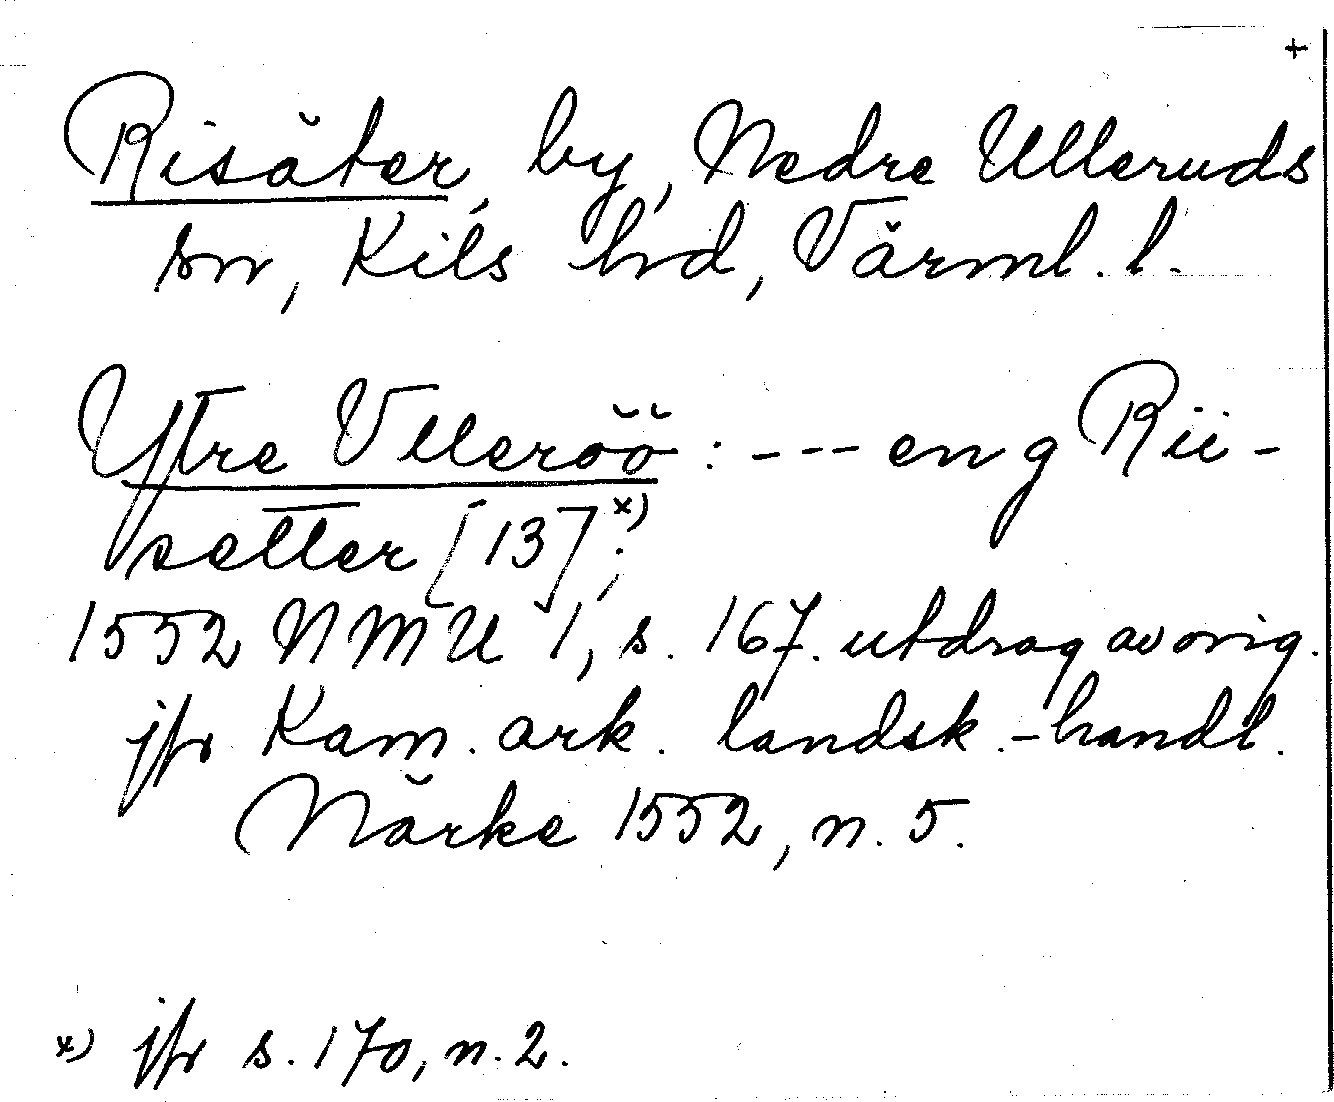 +
Risäter, by, Nedre Ulleruds
sn, Kils hd, Värml. l.
Ytre Vlleröö : --- en g Rii-
setter [13]x);
1552 NMU 1, s. 167. utdrag av orig.
jfr Kam. ark. landsk.-handl.
Närke 1552, n. 5.
x) jfr s. 170, n. 2.